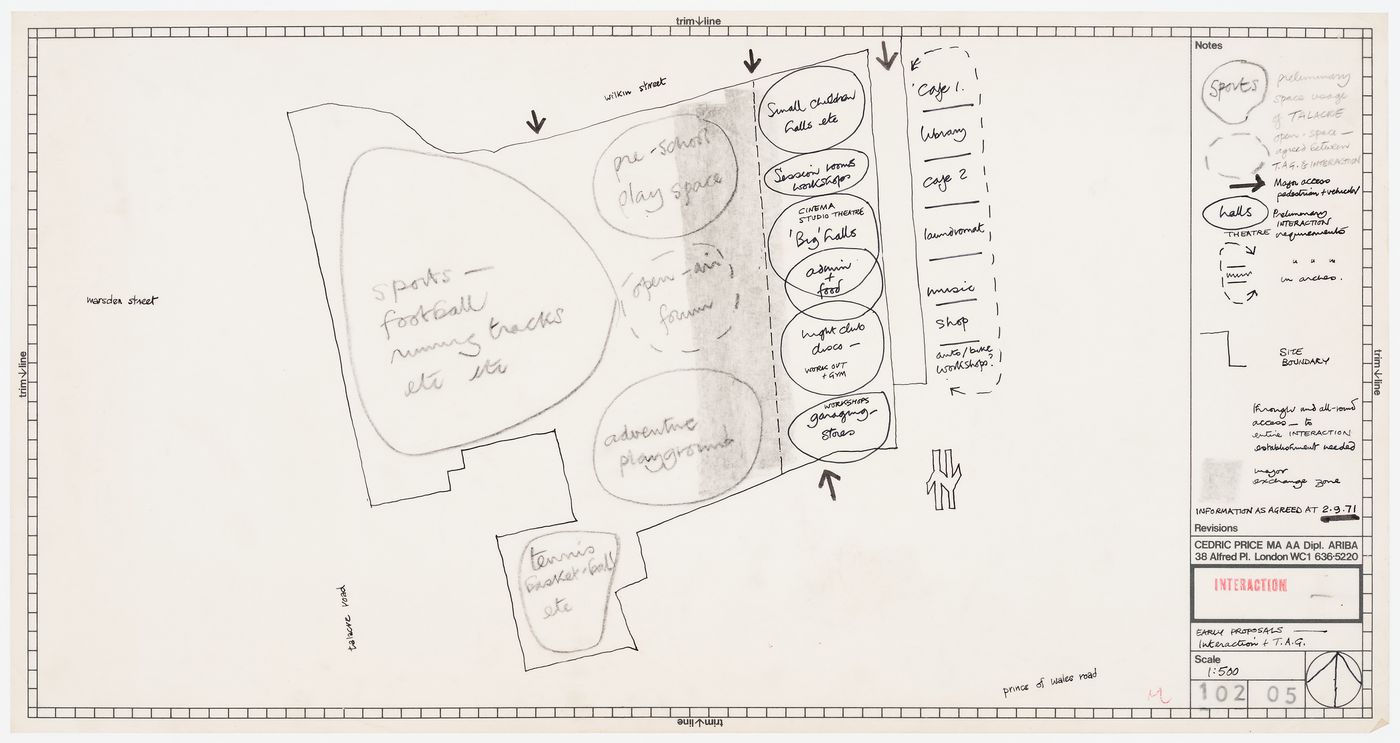 trim↓line
wilkin street
marsden street
talacre road
prince of wales road
trim↓line
trim↓line
trim↓line
sports —
football
running tracks
etc etc
pre-school
play space
open-air
forum
adventure
playground
tennis
basket-ball
etc
Small children
halls etc
Session rooms
workshops
CINEMA
STUDIO THEATRE
'Big' halls
admin
+
food
night club
disco —
WORK OUT
+ GYM
WORKSHOPS
garaging —
stores
Cafe 1.
library
cafe 2
laundromat
music
shop
auto/bike
workshops?
Notes
sports
preliminary
space usage
of TALACRE
open-space —
agreed between
T.A.G. & INTERACTION
Major access
pedestrian + vehicular
halls
Preliminary
INTERACTION
requirements
THEATRE
" " "
in arches.
SITE
BOUNDARY
through and all-round
access — to
entire INTERACTION
establishment needed
major
exchange zone
INFORMATION AS AGREED AT 2.9.71
Revisions
CEDRIC PRICE MA AA Dipl. ARIBA
38 Alfred Pl. London WC1 636-5220
INTERACTION
EARLY PROPOSALS —
Interaction + T.A.G.
Scale
1:500
102 05